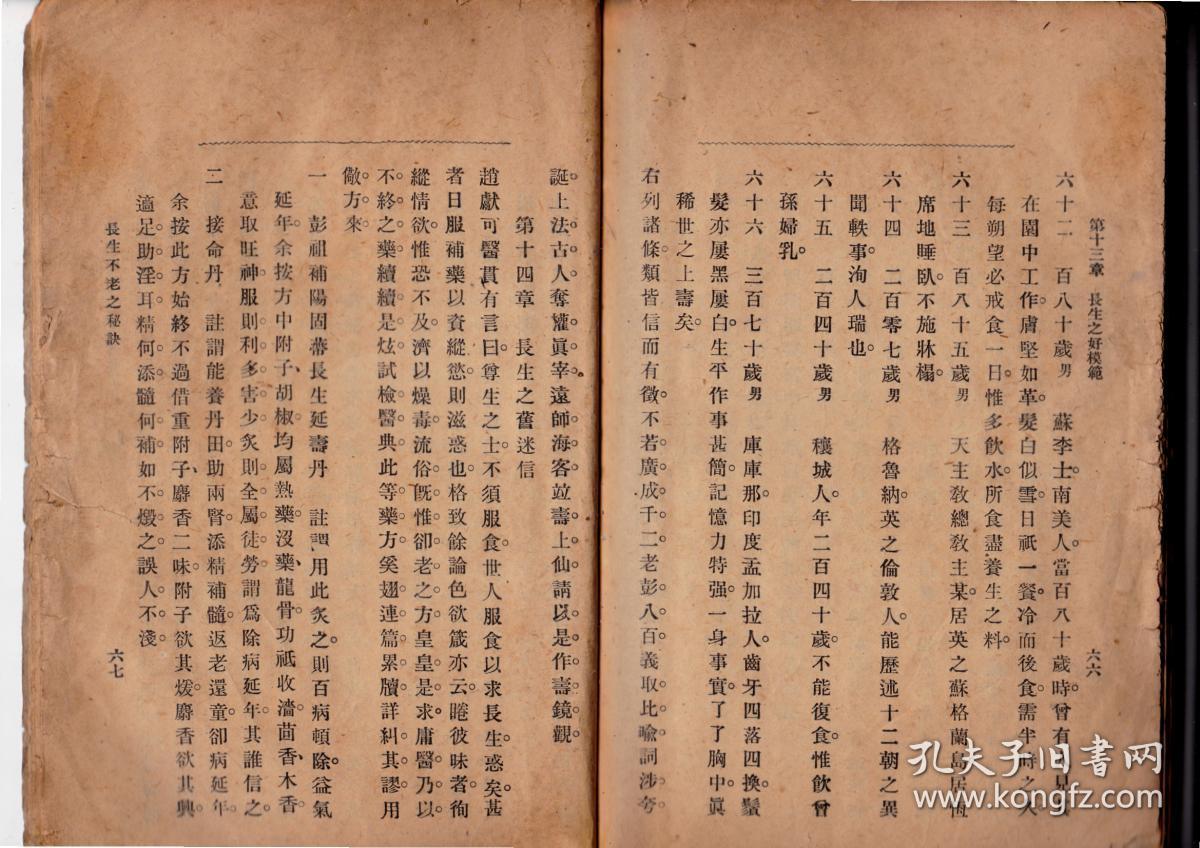 第十三章　長生之好模範
六六
六十二　百八十歲男　蘇李士南美人。當百八十歲時。曾有
在園中工作。膚堅如革。髮白似雪。日祇一餐。冷而後食。需半時之久。
每朔望必戒食一日。惟多飲水。所食盡養生之料
六十三　百八十五歲男　天主敎總敎主某。居英之蘇格蘭島居恆
席地睡臥。不施牀榻。
六十四　二百零七歲男　格魯納。英之倫敦人。能歷述十二朝之異
聞軼事。洵人瑞也。
六十五　二百四十歲男　穰城人。年二百四十歲。不能復食。惟飲曾
孫婦乳。
六十六　三百七十歲男　庫庫那。印度孟加拉人。齒牙四落四換。鬚
髮亦屢黑屢白。生平作事甚簡。記憶力特强。一身事實。了了胸中。眞
稀世之上壽矣。
右列諸條。類皆信而有徵。不若廣成千二。老彭八百。義取比喩。詞涉夸
誕。上法古人。奪權眞宰。遠師海客。竝壽上仙。請以是作壽鏡觀。
第十四章　長生之舊迷信
趙獻可醫貫有言曰。尊生之士。不須服食。世人服食以求長生。惑矣。甚
者日服補藥。以資縱慾。則滋惑也。格致餘論色欲箴亦云。睠彼昧者。徇
縱情欲。惟恐不及。濟以燥毒。流俗旣惟卻老之方皇皇是求。庸醫乃以
不終之藥續續是炫。試檢醫典。此等藥方。奚翅連篇累牘。詳糾其謬。用
儆方來。
一　彭祖補陽固蔕長生延壽丹　註謂用此炙之。則百病頓除。益氣
延年。余按方中附子、胡椒。均屬熱藥。沒藥、龍骨。功祇收濇。茴香、木香
意取旺神。服則利多害少。炙則全屬徒勞。謂爲除病延年。其誰信之。
二　接命丹　註謂能養丹田。助兩腎。添精補髓。返老還童。卻病延年。
余按此方始終不過借重附子、麝香二味。附子欲其煖。麝香欲其興
適足助淫耳。精何添。髓何補。如不燬之。誤人不淺。
長生不老之秘訣
六七
孔夫子旧书网
www.kongfz.com